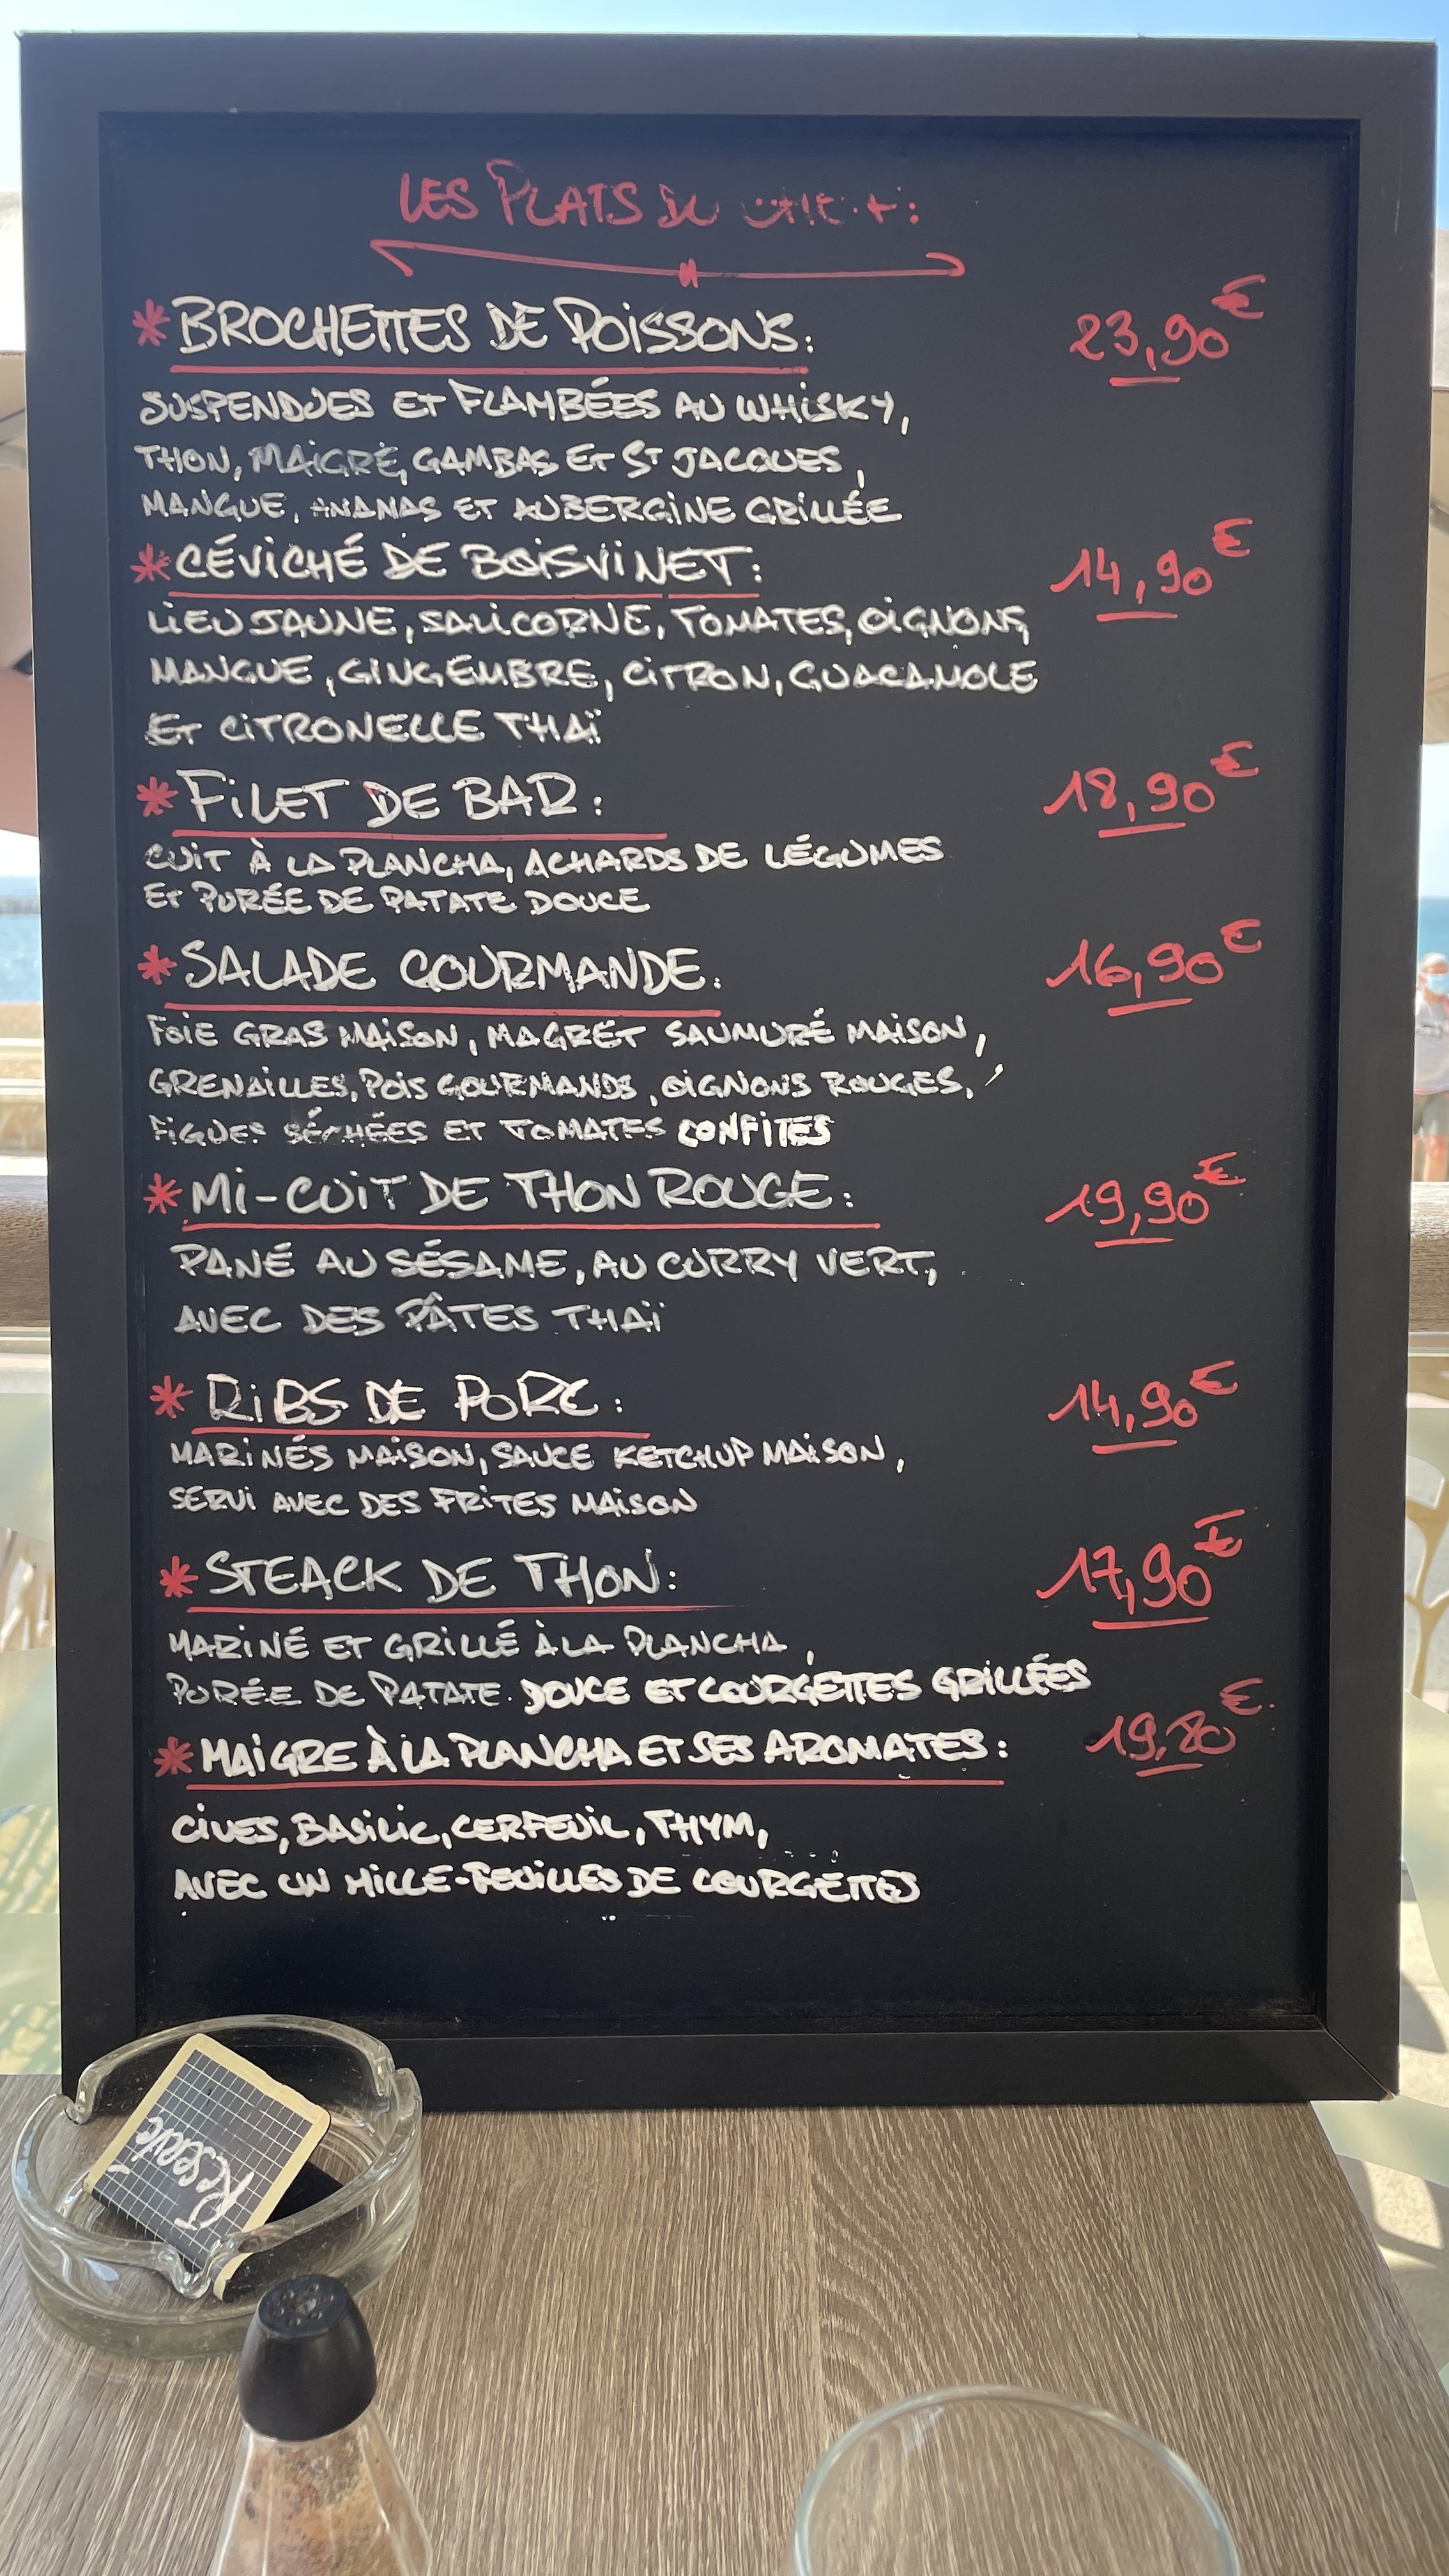 LES PLATS DU
* BROCHETTES DE POISSONS: 23,90€
SUSPENDUES ET FLAMBÉES AU WHISKY,
THON, MAIGRE, GAMBAS ET ST JACQUES,
MANGUE, ANANAS ET AUBERGINE GRILLÉE
* CÉVICHÉ DE BOISVINET: 14,90€
LIEU JAUNE, SALICORNE, TOMATES, OIGNONS,
MANGUE, GINGEMBRE, CITRON, GUACAMOLE
ET CITRONELLE THAÏ
* FILET DE BAR: 18,90€
CUIT À LA PLANCHA, ACHARDS DE LÉGUMES
ET PURÉE DE PATATE DOUCE
* SALADE GOURMANDE: 16,90€
FOIE GRAS MAISON, MAGRET SAUMURÉ MAISON,
GRENAILLES, POIS GOURMANDS, OIGNONS ROUGES,
FIGUES SÉCHÉES ET TOMATES CONFITES
* MI-CUIT DE THON ROUGE: 19,90€
PANÉ AU SÉSAME, AU CURRY VERT,
AVEC DES PÂTES THAÏ
* RIBS DE PORC: 14,90€
MARINÉS MAISON, SAUCE KETCHUP MAISON,
SERVI AVEC DES FRITES MAISON
* STEACK DE THON: 17,90€
MARINÉ ET GRILLÉ À LA PLANCHA,
PURÉE DE PATATE DOUCE ET COURGETTES GRILLÉES
* MAIGRE À LA PLANCHA ET SES AROMATES: 19,80€
CIVES, BASILIC, CERFEUIL, THYM,
AVEC UN MILLE-FEUILLES DE COURGETTES
Réservé